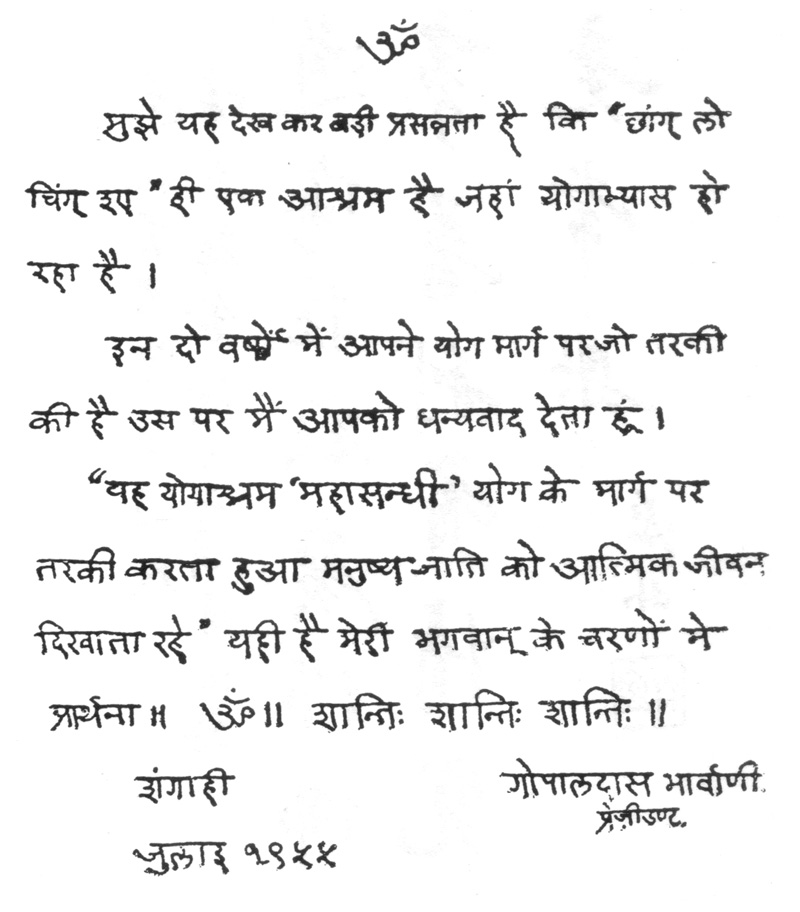 ॐ
मुझे यह देख कर बड़ी प्रसन्नता है कि "छांग् लो
चिंग् इए" ही एक आश्रम है जहां योगाभ्यास हो
रहा है ।
इन दो वर्षों में आपने योग मार्ग पर जो तरकी
की है उस पर मैं आपको धन्यवाद देता हूं ।
"यह योगाश्रम 'महासन्धी' योग के मार्ग पर
तरकी करता हुआ मनुष्य जाति को आत्मिक जीवन
दिखाता रहे" यही है मेरी भगवान् के चरणों मे
प्रार्थना ॥ ॐ ॥ शान्तिः शान्तिः शान्तिः ॥
शंगाही गोपालदास भार्वाणी
प्रेजीडण्ट.
जुलाइ १९५५